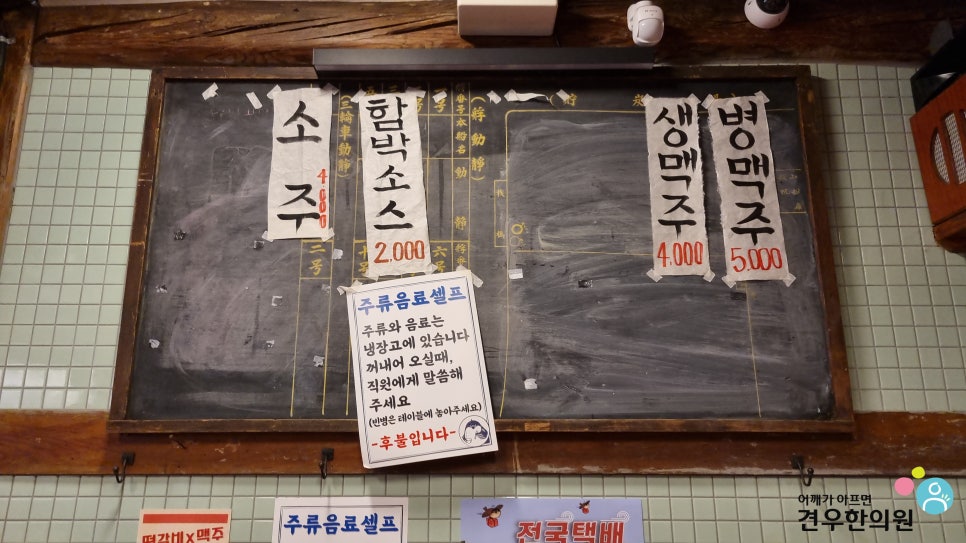 소주
4,000
함박소스
2,000
생맥주
4,000
병맥주
5,000
(三輪車動靜)
(将動靜)
二号
六号
주류음료셀프
주류와 음료는
냉장고에 있습니다
꺼내어 오실때,
직원에게 말씀해
주세요
(빈병은 테이블에 놓아주세요)
-후불입니다-
떡갈비X맥주
주류음료셀프
전국택배
어깨가 아프면
견우한의원